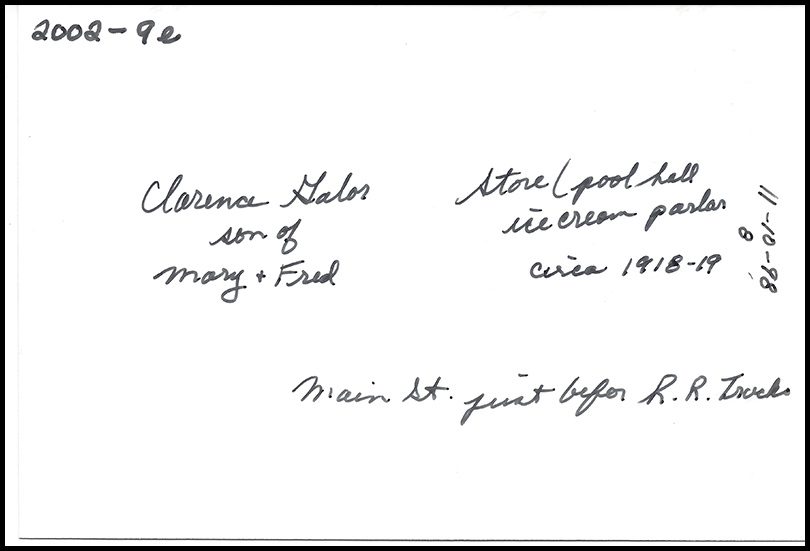 2002-9e
Clarence Galos
son of
Mary + Fred
Store (pool hall
ice cream parlar
circa 1918-19
11-10-98
B
Main St. just befor R.R. Tracks